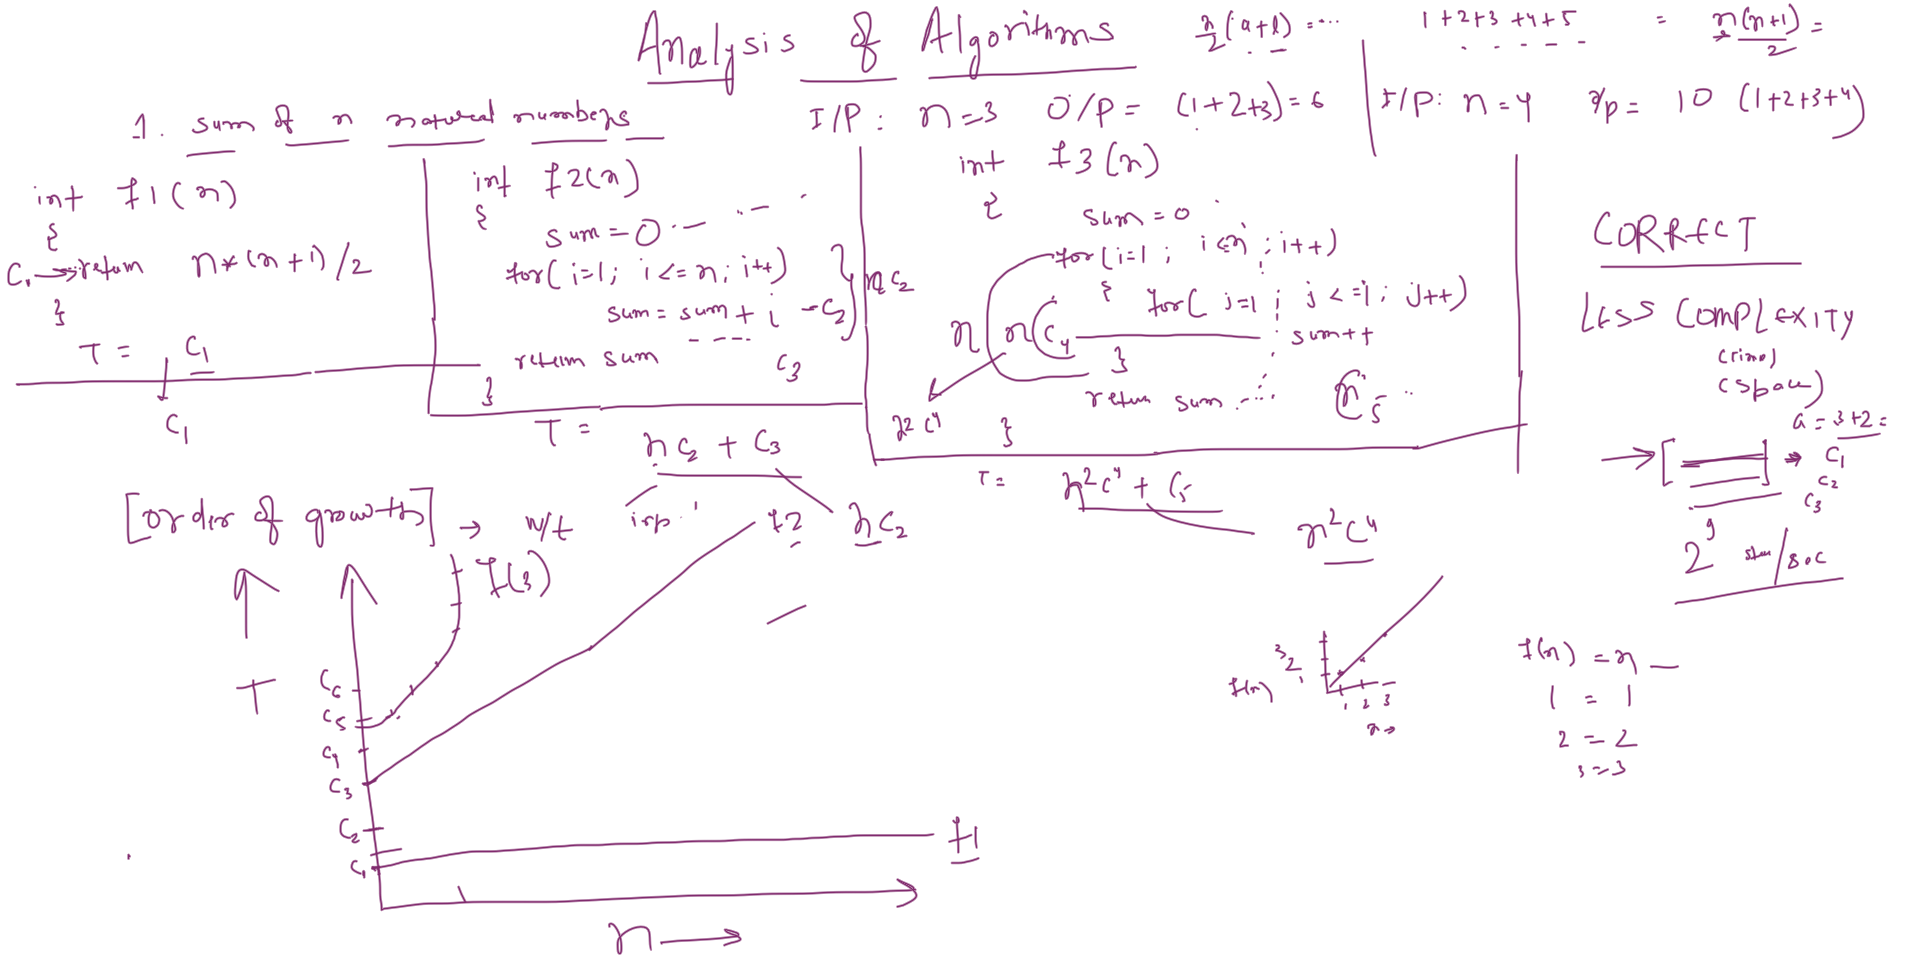 Analysis of Algorithms
n/2 (a+l) = ...
1+2+3+4+5 = n(n+1)/2 =
1. sum of n natural numbers
I/P: n=3 O/P = (1+2+3) = 6
I/P: n=4 O/p = 10 (1+2+3+4)
int f1(n)
{
C1 → return n*(n+1)/2
}
T = C1
C1
int f2(n)
{
sum = 0
for(i=1; i<=n; i++)
sum = sum + i - C2
nC2
return sum C3
}
T = nC2 + C3
int f3(n)
{
sum = 0
for(i=1; i<=n; i++)
{ for( j=1; j<=i; j++)
n n(C4 sum++
}
return sum C5
n2 C4
}
T = n²C4 + C5
CORRECT
LESS COMPLEXITY
(Time)
(space)
a = 3+2 =
→ [ ] → C1
C2
C3
2^9 /sec
[order of growth] → w/t inp.
f2 nC2
n²C4
f(3)
T
C6
C5
C4
C3
C2
C1
f1
n →
f(n)
3
2
1
1 2 3
n→
f(n) = n
1 = 1
2 = 2
3 = 3